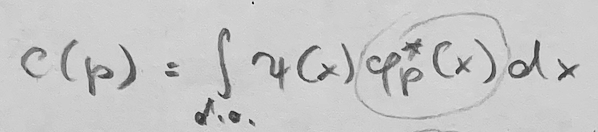 c(p) = ∫ ψ(x) φ*ₚ(x) dx